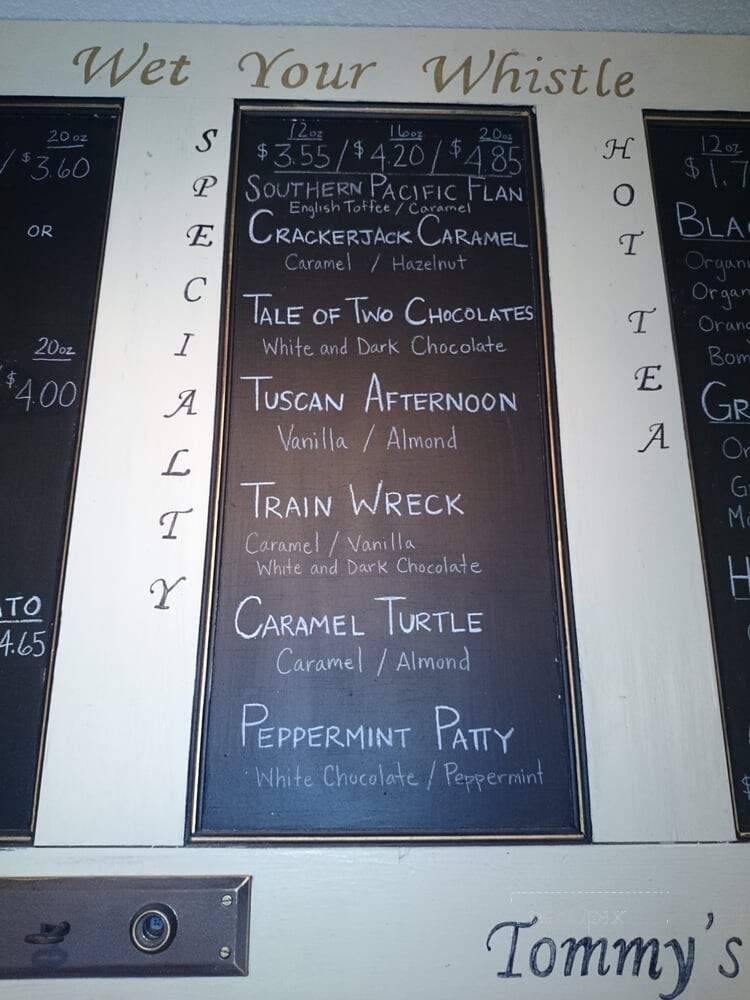 Wet Your Whistle
20oz
/ $3.60
OR
20oz
$4.00
TO
4.65
SPECIALTY
12oz 16oz 20oz
$3.55/$4.20/$4.85
SOUTHERN PACIFIC FLAN
English Toffee / Caramel
CRACKERJACK CARAMEL
Caramel / Hazelnut
TALE OF TWO CHOCOLATES
White and Dark Chocolate
TUSCAN AFTERNOON
Vanilla / Almond
TRAIN WRECK
Caramel / Vanilla
White and Dark Chocolate
CARAMEL TURTLE
Caramel / Almond
PEPPERMINT PATTY
White Chocolate / Peppermint
HOT TEA
12oz
$1.7
BLA
Organ
Organ
Oran
Bom
GR
Or
G
Mo
H
$
Tommy's